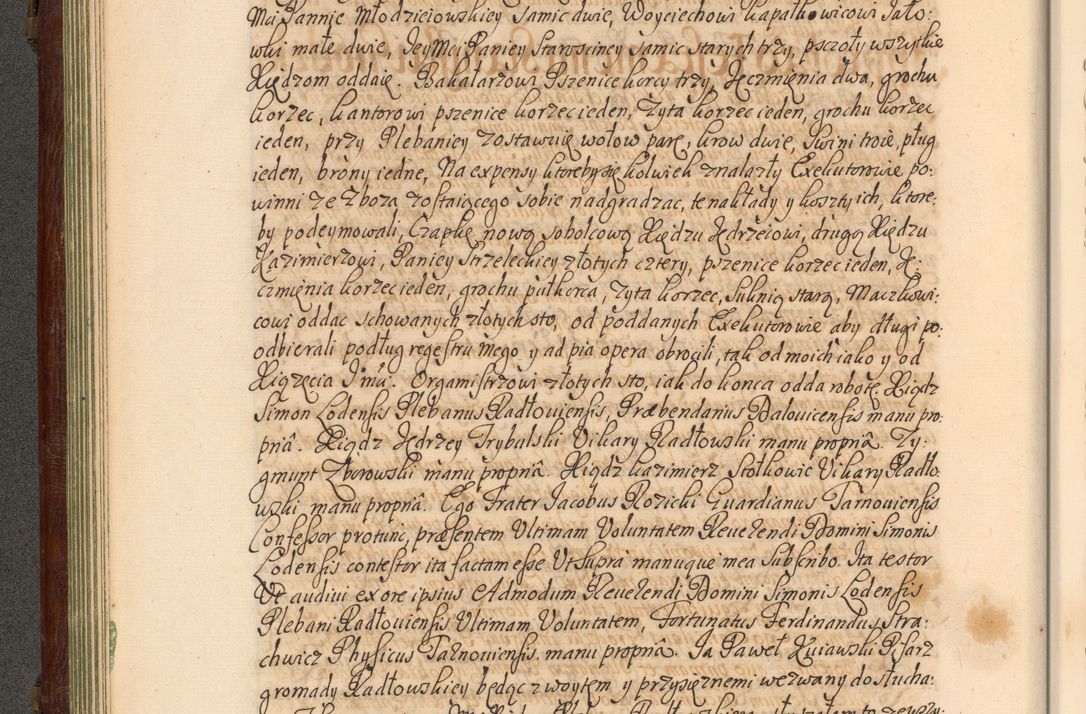 Mci Pannie Młodzieiowskiey Samic dwie, Woyciechowi Kapałkowicowi Jało-
wki małe dwie, Jey Mci Paniey Staroscincy samic starych trzy, psczoły wszytkie
Xiędzom oddaię. Bakałarzowi Pszenice korcy trzy, Jęczmięnia dwa, grochu
korzec, kantorowi pszenice korzec ieden, Zyta korzec ieden, grochu korzec
ieden, przy Plebaniey zostawuię wołow parę, krow dwie, Swini troie, pług
ieden, brony iedne, Na expensy ktoreby się kolwiek znalazły Exekutorowie po-
winni ze zboza zostaiącego sobie nadgradzac, te nakłady y koszty ich, ktore-
by podeymowali, Czapkę nową sobolcową Xiędzu Jędrzeiowi, drugą Xiędzu
Kazimierzowi, Paniey Strzeleckiey złotych cztery, pszenice korzec ieden, Ję-
czmięnia korzec ieden, grochu pułkorca, Zyta korzec, Suknią starą, Maczkowi-
cowi oddac schowanych złotych sto, od poddanych Exekutorowie aby długi po-
odbierali podług regestru mego y ad pia opera obrocili, tak od moich iako y od
Xiązęcia Jmci. Orgamistrzowi złotych sto, iak do konca odda robotę. Xiądz
Simon Lodensis Plebanus Radłouiensis, Præbendarius Dalouicensis manu pro-
pria. Xiądz Jędrzey Trybalski Vikary Radłowski manu propria. Zy-
gmunt Zborowski manu propria. Xiądz Kazimierz Stołkowic Vikary Radło-
wski manu propria. Ego Frater Jacobus Rozicki Guardianus Tarnouiensis
Confessor protunc, præsentem Ultimam Voluntatem Reuerendi Domini Simonis
Lodensis contestor ita factam esse Ut supra manuque mea Subscribo. Ita testor
Ut audiui ex ore ipsius Admodum Reuerendi Domini Simonis Lodensis
Plebani Radłouiensis Ultimam Voluntatem, Fortunatus Ferdinandus Stra-
chwicz Physicus Tarnouiensis manu propria. Ja Paweł Kuiawski Pisarz
gromady Radłowskiey będąc z woytem y przysięznemi wezwany do słucha-